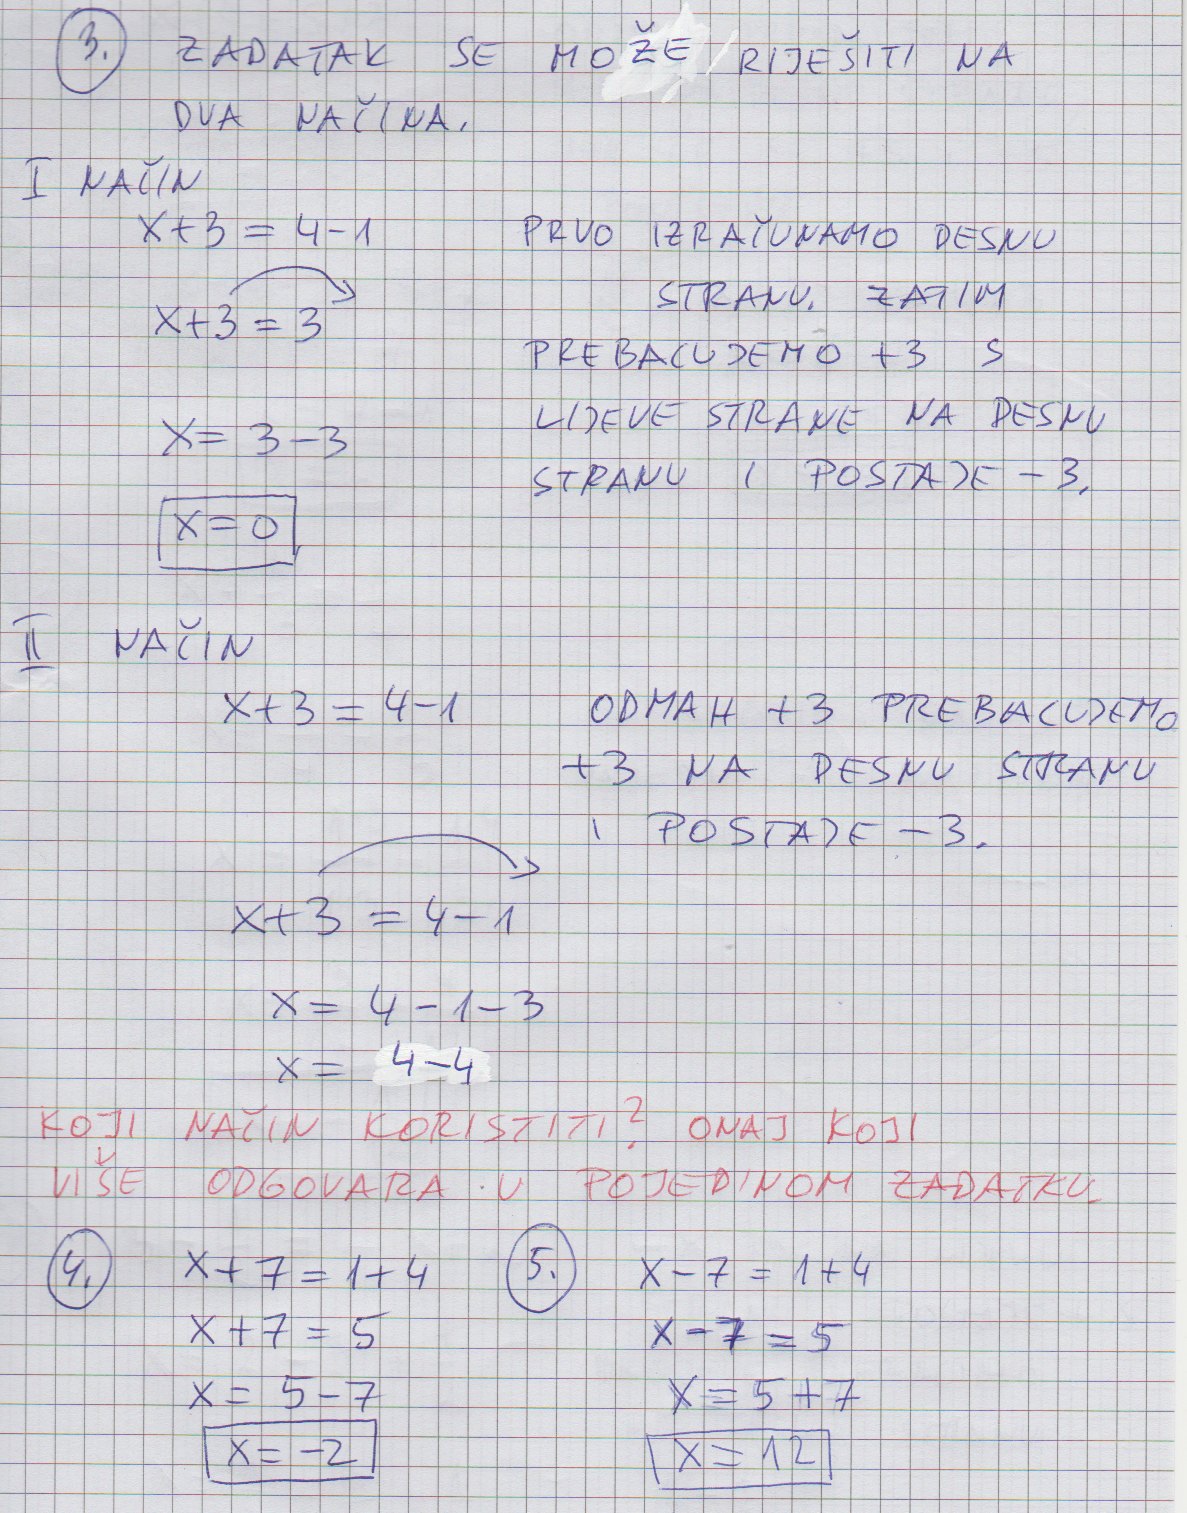 3. ZADATAK SE MOŽE RIJEŠITI NA
DVA NAČINA.
I NAČIN
x+3=4-1
x+3=3
x=3-3
x=0
PRVO IZRAČUNAMO DESNU
STRANU. ZATIM
PREBACUJEMO +3 S
LIJEVE STRANE NA DESNU
STRANU I POSTAJE -3.
II NAČIN
x+3=4-1
ODMAH +3 PREBACUJEMO
+3 NA DESNU STRANU
I POSTAJE -3.
x+3=4-1
x=4-1-3
x=4-4
KOJI NAČIN KORISTITI? ONAJ KOJI
VIŠE ODGOVARA U POJEDINOM ZADATKU
4. x+7=1+4
x+7=5
x=5-7
x=-2
5. x-7=1+4
x-7=5
x=5+7
x=12